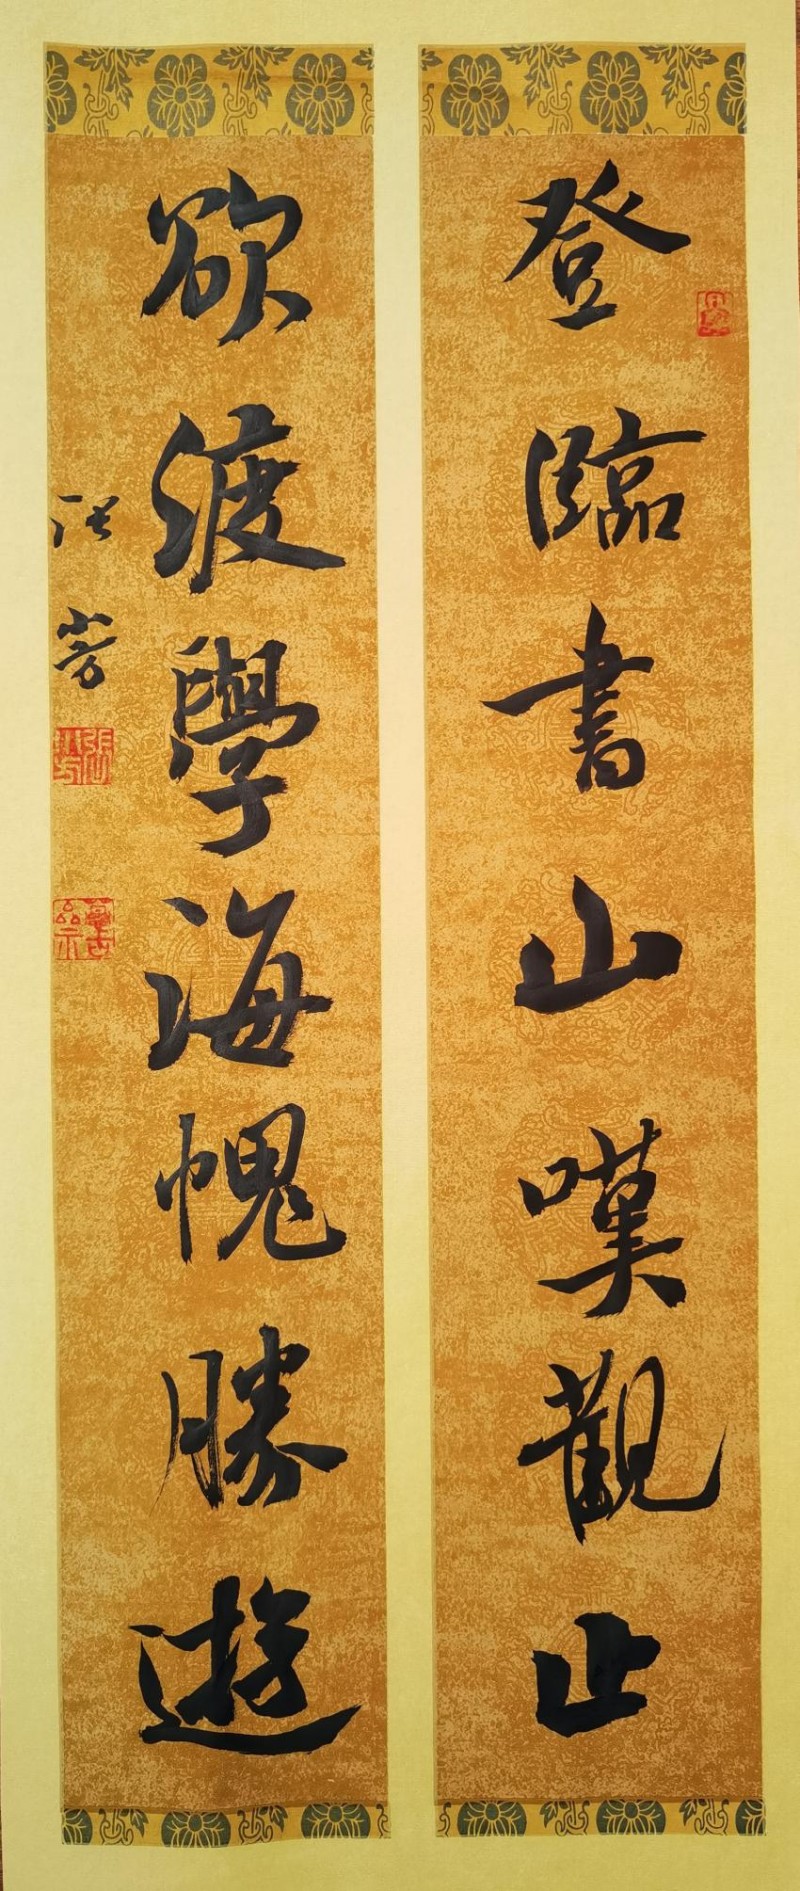 登臨書山嘆觀止
欲渡學海愧勝遊